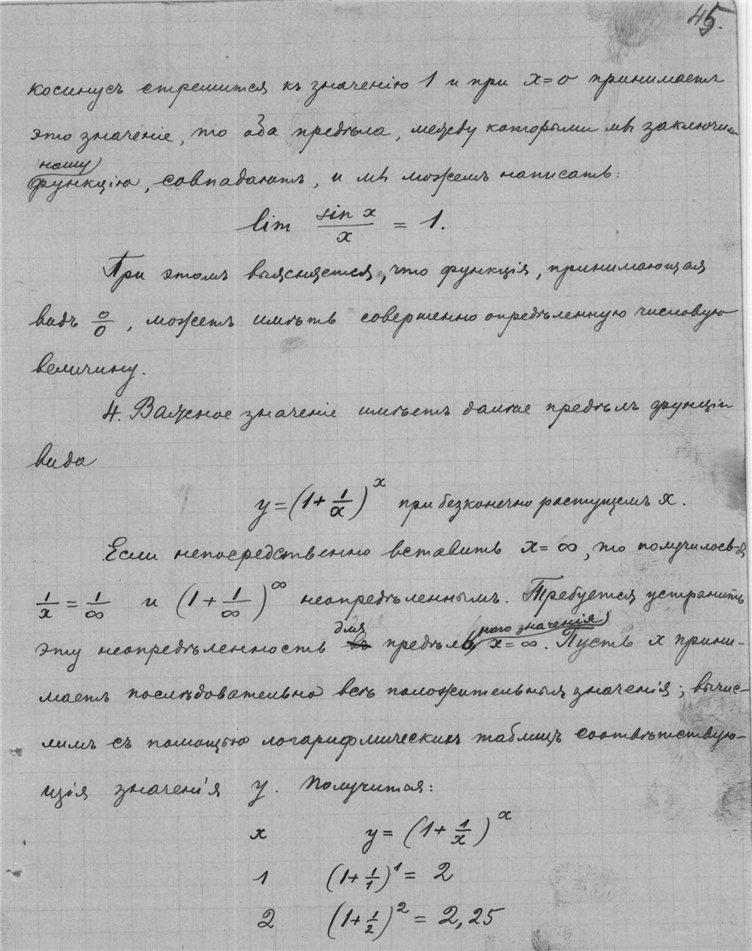 45.
косинусъ стремится къ значенію 1 и при x=0 принимаетъ
это значеніе, то оба предѣла, между которыми мы заключили
нашу
функцію, совпадаютъ, и мы можемъ написать:
lim sin x / x = 1.
При этомъ выясняется, что функція, принимающая
видъ 0/0, можетъ имѣть совершенно опредѣленную числовую
величину.
4. Важное значеніе имѣетъ далѣе предѣлъ функціи
вида
y = (1 + 1/x)^x при безконечно растущемъ x.
Если непосредственно вставить x = ∞, то получилось-бы
1/x = 1/∞ и (1 + 1/∞)^∞ неопредѣленнымъ. Требуется устранить
для наго значенія
эту неопредѣленность предѣль x = ∞. Пусть x прини-
маетъ послѣдовательно всѣ положительныя значенія; вычис-
лимъ съ помощью логарифмическихъ таблицъ соотвѣтствую-
щія значенія y. Получится:
x y = (1 + 1/x)^x
1 (1 + 1/1)^1 = 2
2 (1 + 1/2)^2 = 2,25